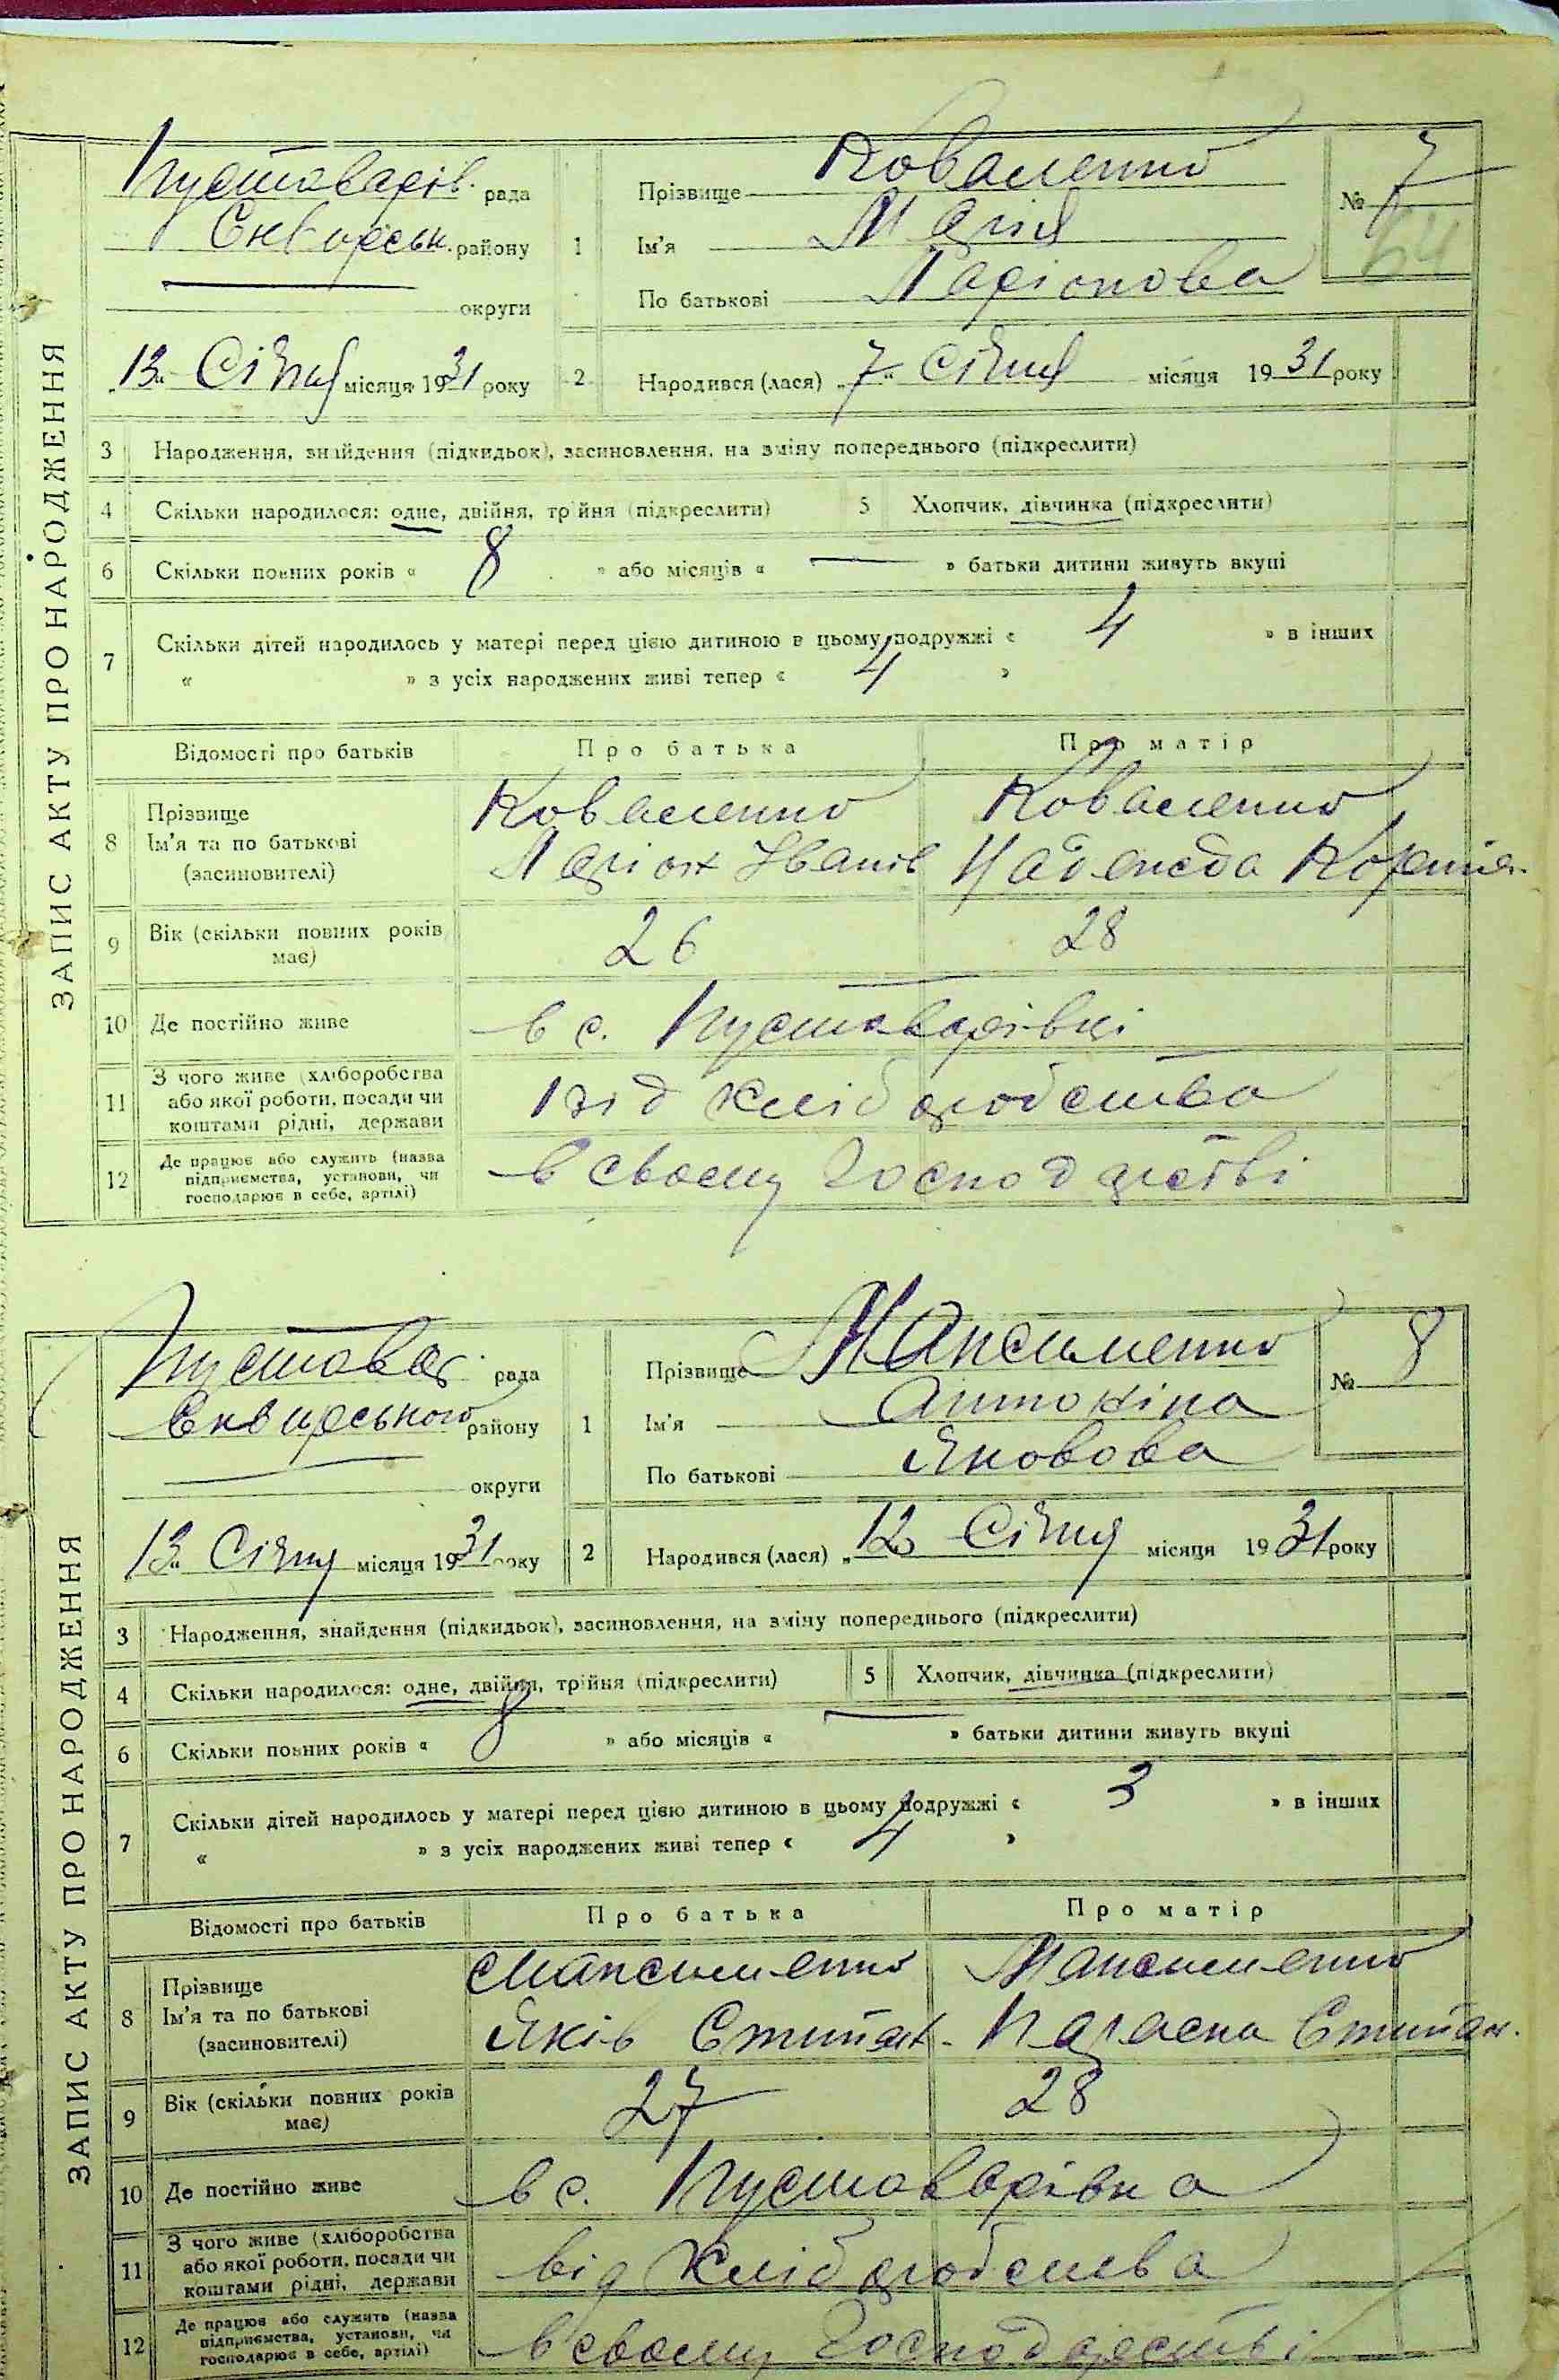 ЗАПИС АКТУ ПРО НАРОДЖЕННЯ
Пустоварів. рада
Сквирськ. району
округи
"13" Січня місяця 1931 року
1
Прізвище Коваленко
Ім'я Марія
По батькові Ларіонова
№ 7
64
2 Народився (лася) „7" Січня місяця 1931 року
3 Народження, знайдення (підкидьок), засиновлення, на зміну попереднього (підкреслити)
4 Скільки народилося: одне, двійня, трійня (підкреслити) 5 Хлопчик, дівчинка (підкреслити)
6 Скільки повних років « 8 » або місяців « — » батьки дитини живуть вкупі
7 Скільки дітей народилось у матері перед цією дитиною в цьому подружжі « 4 » в інших
« » з усіх народжених живі тепер « 4 »
Відомості про батьків Про батька Про матір
8 Прізвище Коваленко Коваленко
Ім'я та по батькові Ларіон Іванів Надежда Корнієв.
(засиновителі)
9 Вік (скільки повних років 26 28
має)
10 Де постійно живе в с. Пустоварівці
11 З чого живе (хліборобства
або якої роботи, посади чи від хліборобства
коштами рідні, держави
12 Де працює або служить (назва
підприємства, установи, чи в своему господарстві
господарює в себе, артілі)
ЗАПИС АКТУ ПРО НАРОДЖЕННЯ
Пустовар. рада
Сквирського району
округи
"13" Січня місяця 1931 року
1
Прізвище Максименко
Ім'я Антоніна
По батькові Яковова
№ 8
2 Народився (лася) „12 Січня місяця 1931 року
3 Народження, знайдення (підкидьок), засиновлення, на зміну попереднього (підкреслити)
4 Скільки народилося: одне, двійня, трійня (підкреслити) 5 Хлопчик, дівчинка (підкреслити)
6 Скільки повних років « 8 » або місяців « — » батьки дитини живуть вкупі
7 Скільки дітей народилось у матері перед цією дитиною в цьому подружжі « 3 » в інших
« » з усіх народжених живі тепер « 4 »
Відомості про батьків Про батька Про матір
8 Прізвище Максименко Максименко
Ім'я та по батькові Яків Степан. Параска Степан.
(засиновителі)
9 Вік (скільки повних років 27 28
має)
10 Де постійно живе в с. Пустоварівка
11 З чого живе (хліборобства
або якої роботи, посади чи від хліборобства
коштами рідні, держави
12 Де працює або служить (назва
підприємства, установи, чи в своему господарстві
господарює в себе, артілі)